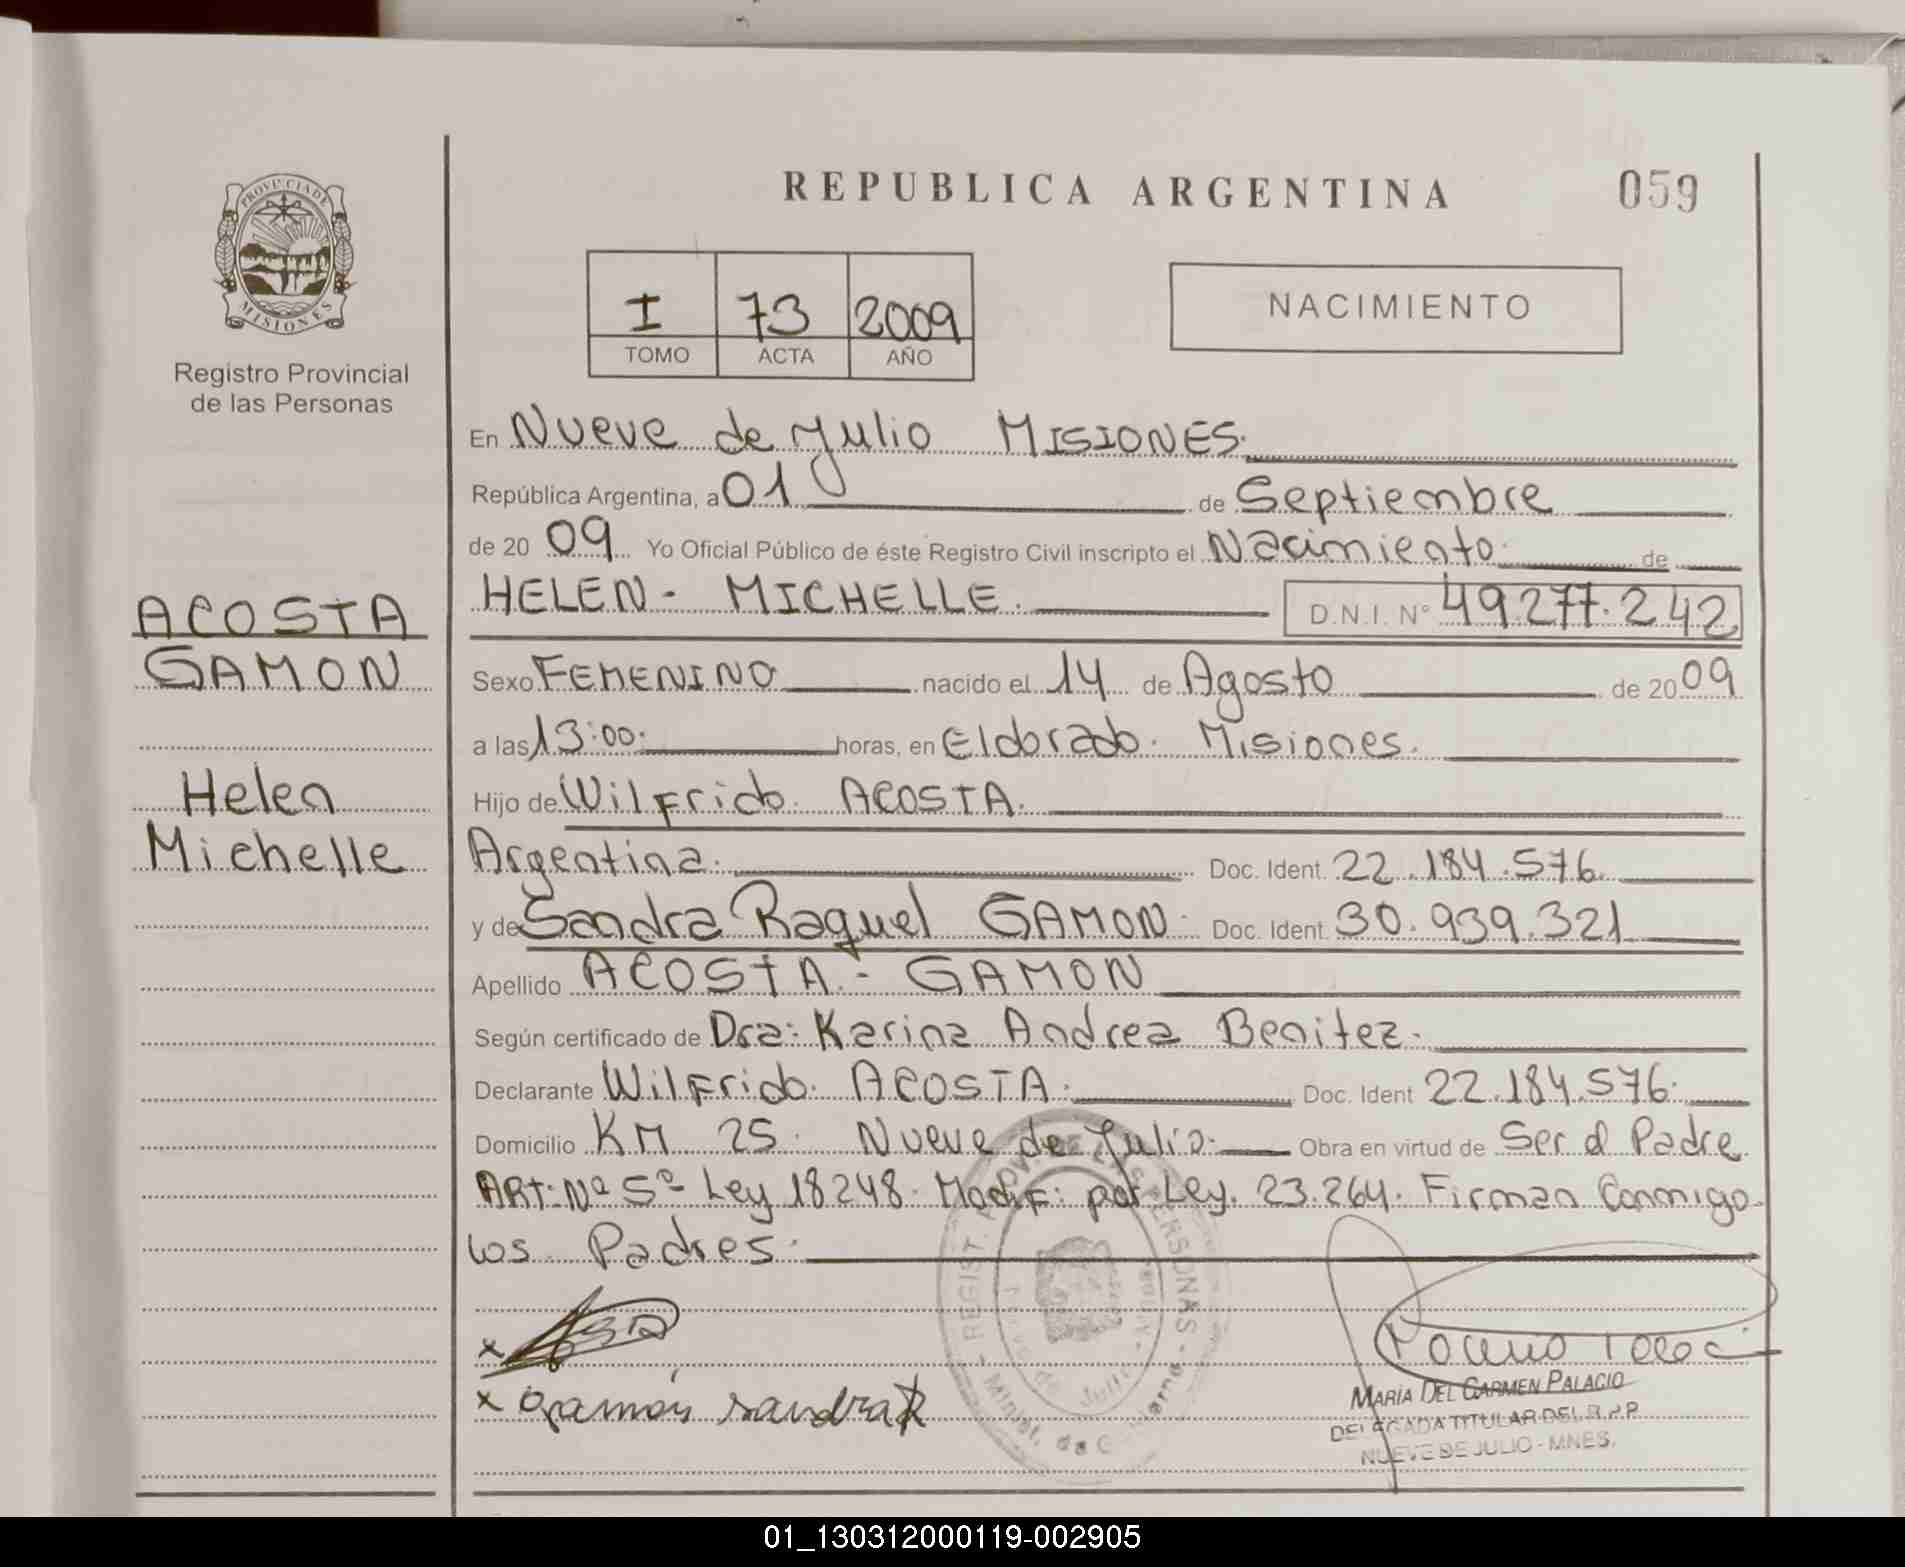 REPUBLICA ARGENTINA
059
PROVINCIA DE
MISIONES
Registro Provincial
de las Personas
I 73 2009
TOMO ACTA AÑO
NACIMIENTO
ACOSTA
GAMON
Helen
Michelle
En Nueve de Julio MISIONES.
República Argentina, a 01 de Septiembre
de 20 09 Yo Oficial Público de éste Registro Civil inscripto el Nacimiento de
HELEN - MICHELLE. D.N.I. Nº 49.277.242
Sexo FEMENINO nacido el 14 de Agosto de 20 09
a las 13:00. horas, en Eldorado. Misiones.
Hijo de Wilfrido. ACOSTA.
Argentina. Doc. Ident. 22.184.576.
y de Sandra Raquel GAMON. Doc. Ident. 30.939.321
Apellido ACOSTA - GAMON
Según certificado de Dra: Karina Andrea Benitez.
Declarante Wilfrido. ACOSTA. Doc. Ident 22.184.576.
Domicilio KM 25. Nueve de Julio. Obra en virtud de Ser el Padre
ART: Nº 5º Ley 18248. Modif: por Ley. 23.264. Firman Conmigo
los Padres.
x
x Gamón Sandra R
MARIA DEL CARMEN PALACIO
DELEGADA TITULAR DEL R.P.P
NUEVE DE JULIO - MNES.
01_130312000119-002905